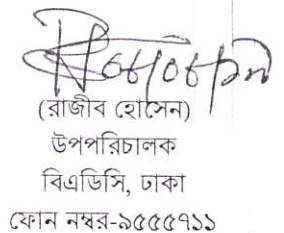 (রাজীব হোসেন)
উপপরিচালক
বিএডিসি, ঢাকা
ফোন নম্বর-৯৫৫৫৭১১